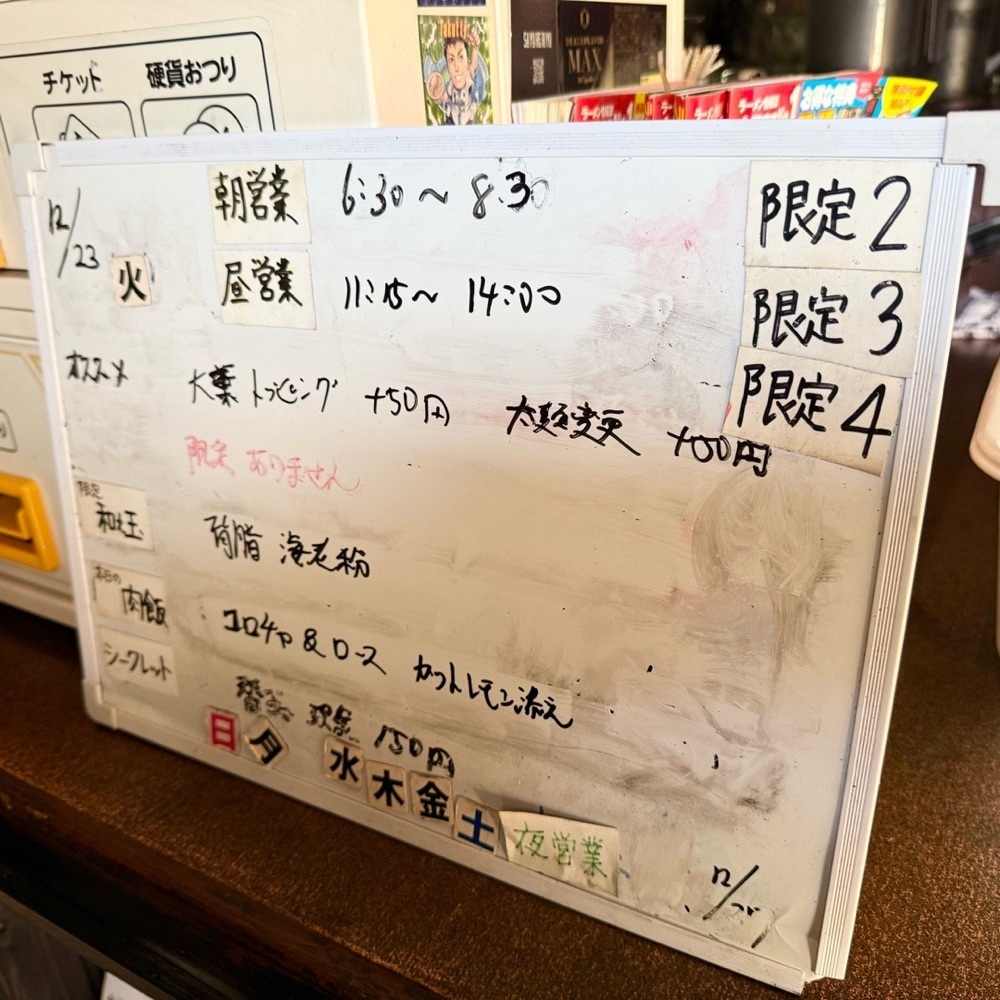 チケット 硬貨おつり
MAX
お得な特典
12/23 火
朝営業 6:30～8:30
昼営業 11:15～14:00
限定2
限定3
限定4
オススメ 大葉トッピング +50円 太麺変更 +50円
限定ありません
限定 和え玉 背脂 海老粉
本日の肉飯 コロチャ&ロース カットレモン添え
シークレット 150円
日 月 水 木 金 土 夜営業
12/